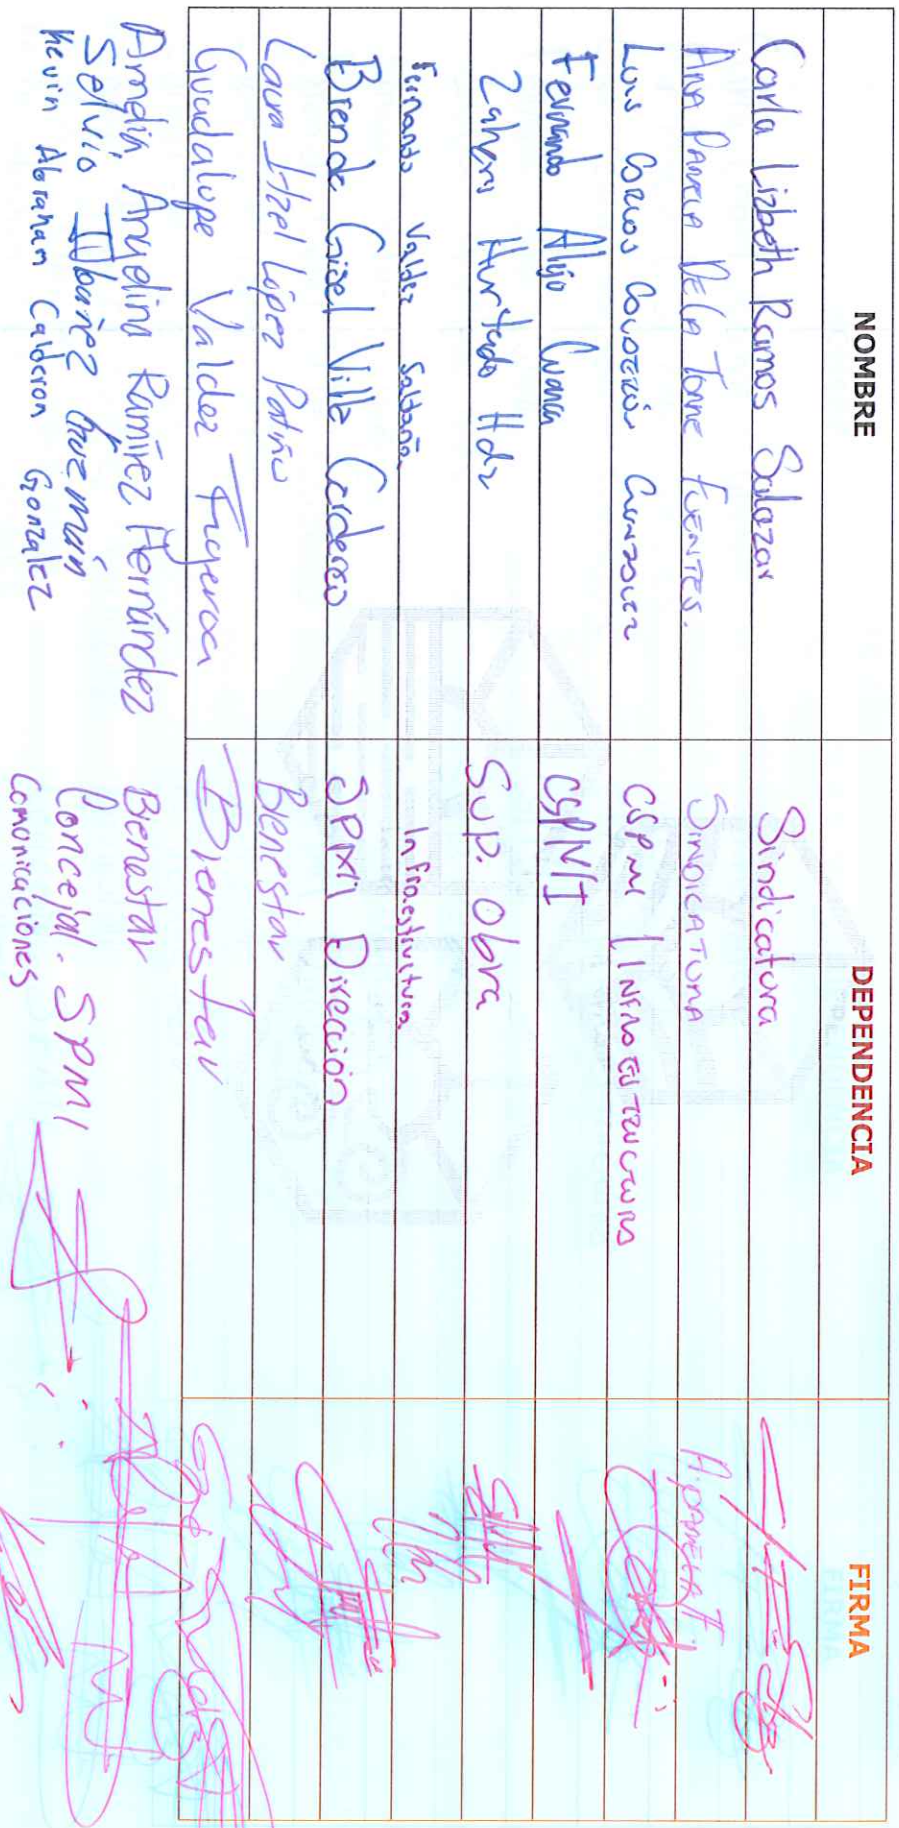 NOMBRE DEPENDENCIA FIRMA
Carla Lizbeth Ramos Salazar Sindicatura
Ana Pamela De la Torre Fuentes. Sindicatura A. Pamela T
Luis Carlos González CSPMI Infraestructura
Fernando Alejo CSPMI
Hurtado Hdz Sup. Obra
Fernando Valdez Saldaña Infraestructura
Brenda Gisel Villa Cordero SPMI Dirección
Laura Itzel López Patiño Benestar
Guadalupe Valdez Figueroa Bienestar
Angelina Ramírez Hernández Bienestar
Selvio Ibañez Guzmán Concejal. SPMI
Kevin Abraham Calderon Gonzalez Comunicaciones